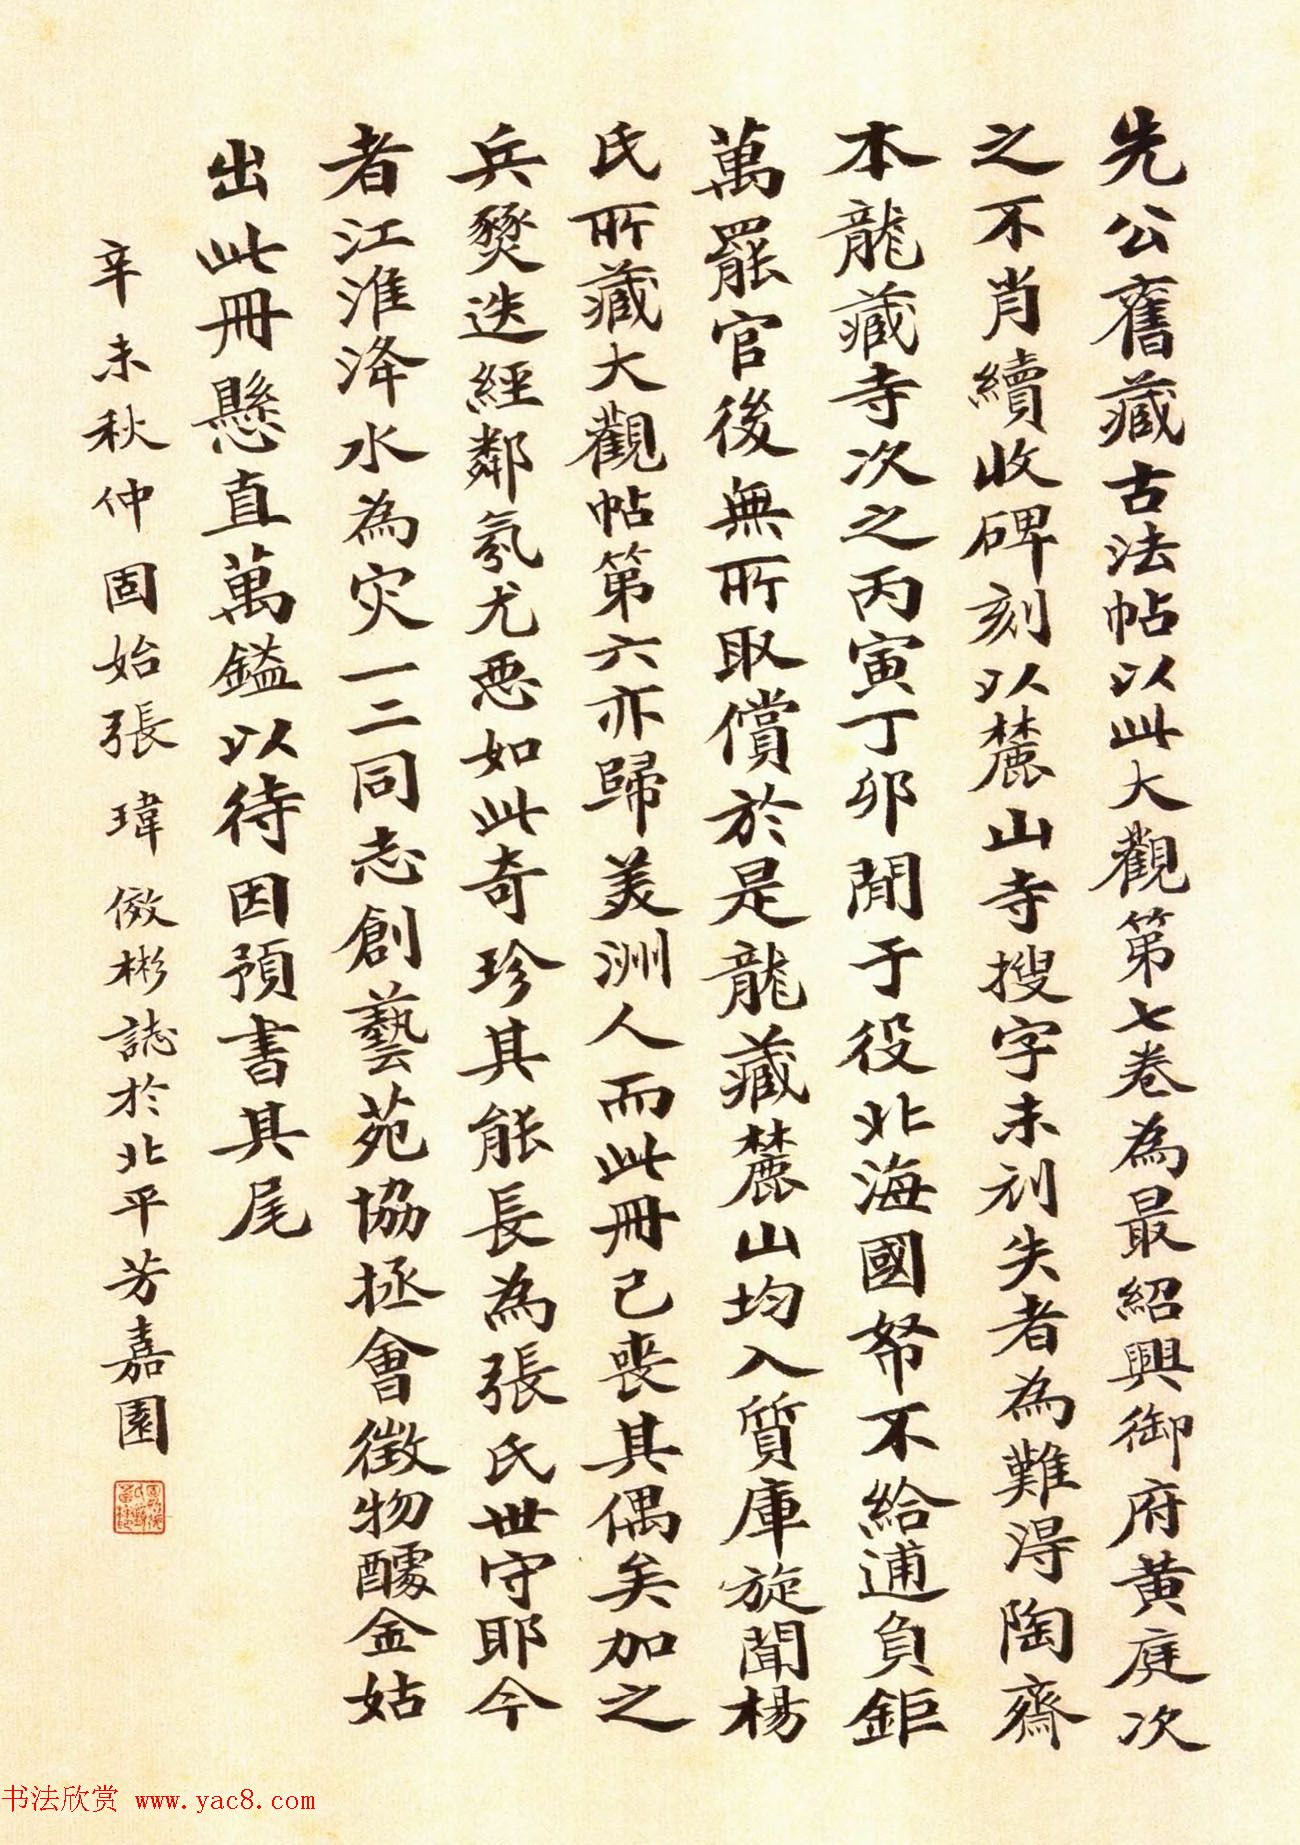 先公舊藏古法帖以此大觀第七卷為最紹興御府黄庭次
之不肖續收碑刻以麓山寺搜字未刓失者為難淂陶齋
本龍藏寺次之丙寅丁卯間于役北海國帑不給逋負鉅
萬罷官後無所取償於是龍藏麓山均入質庫旋聞楊
氏所藏大觀帖第六亦歸美洲人而此冊已喪其偶矣加之
兵燹迭經鄰氛尤惡如此奇珍其能長為張氏世守耶今
者江淮洚水為灾一二同志創藝苑協拯會徵物醵金姑
出此冊懸直萬鎰以待因預書其尾
辛未秋仲固始張瑋傚彬誌於北平芳嘉園
书法欣赏 www.yac8.com